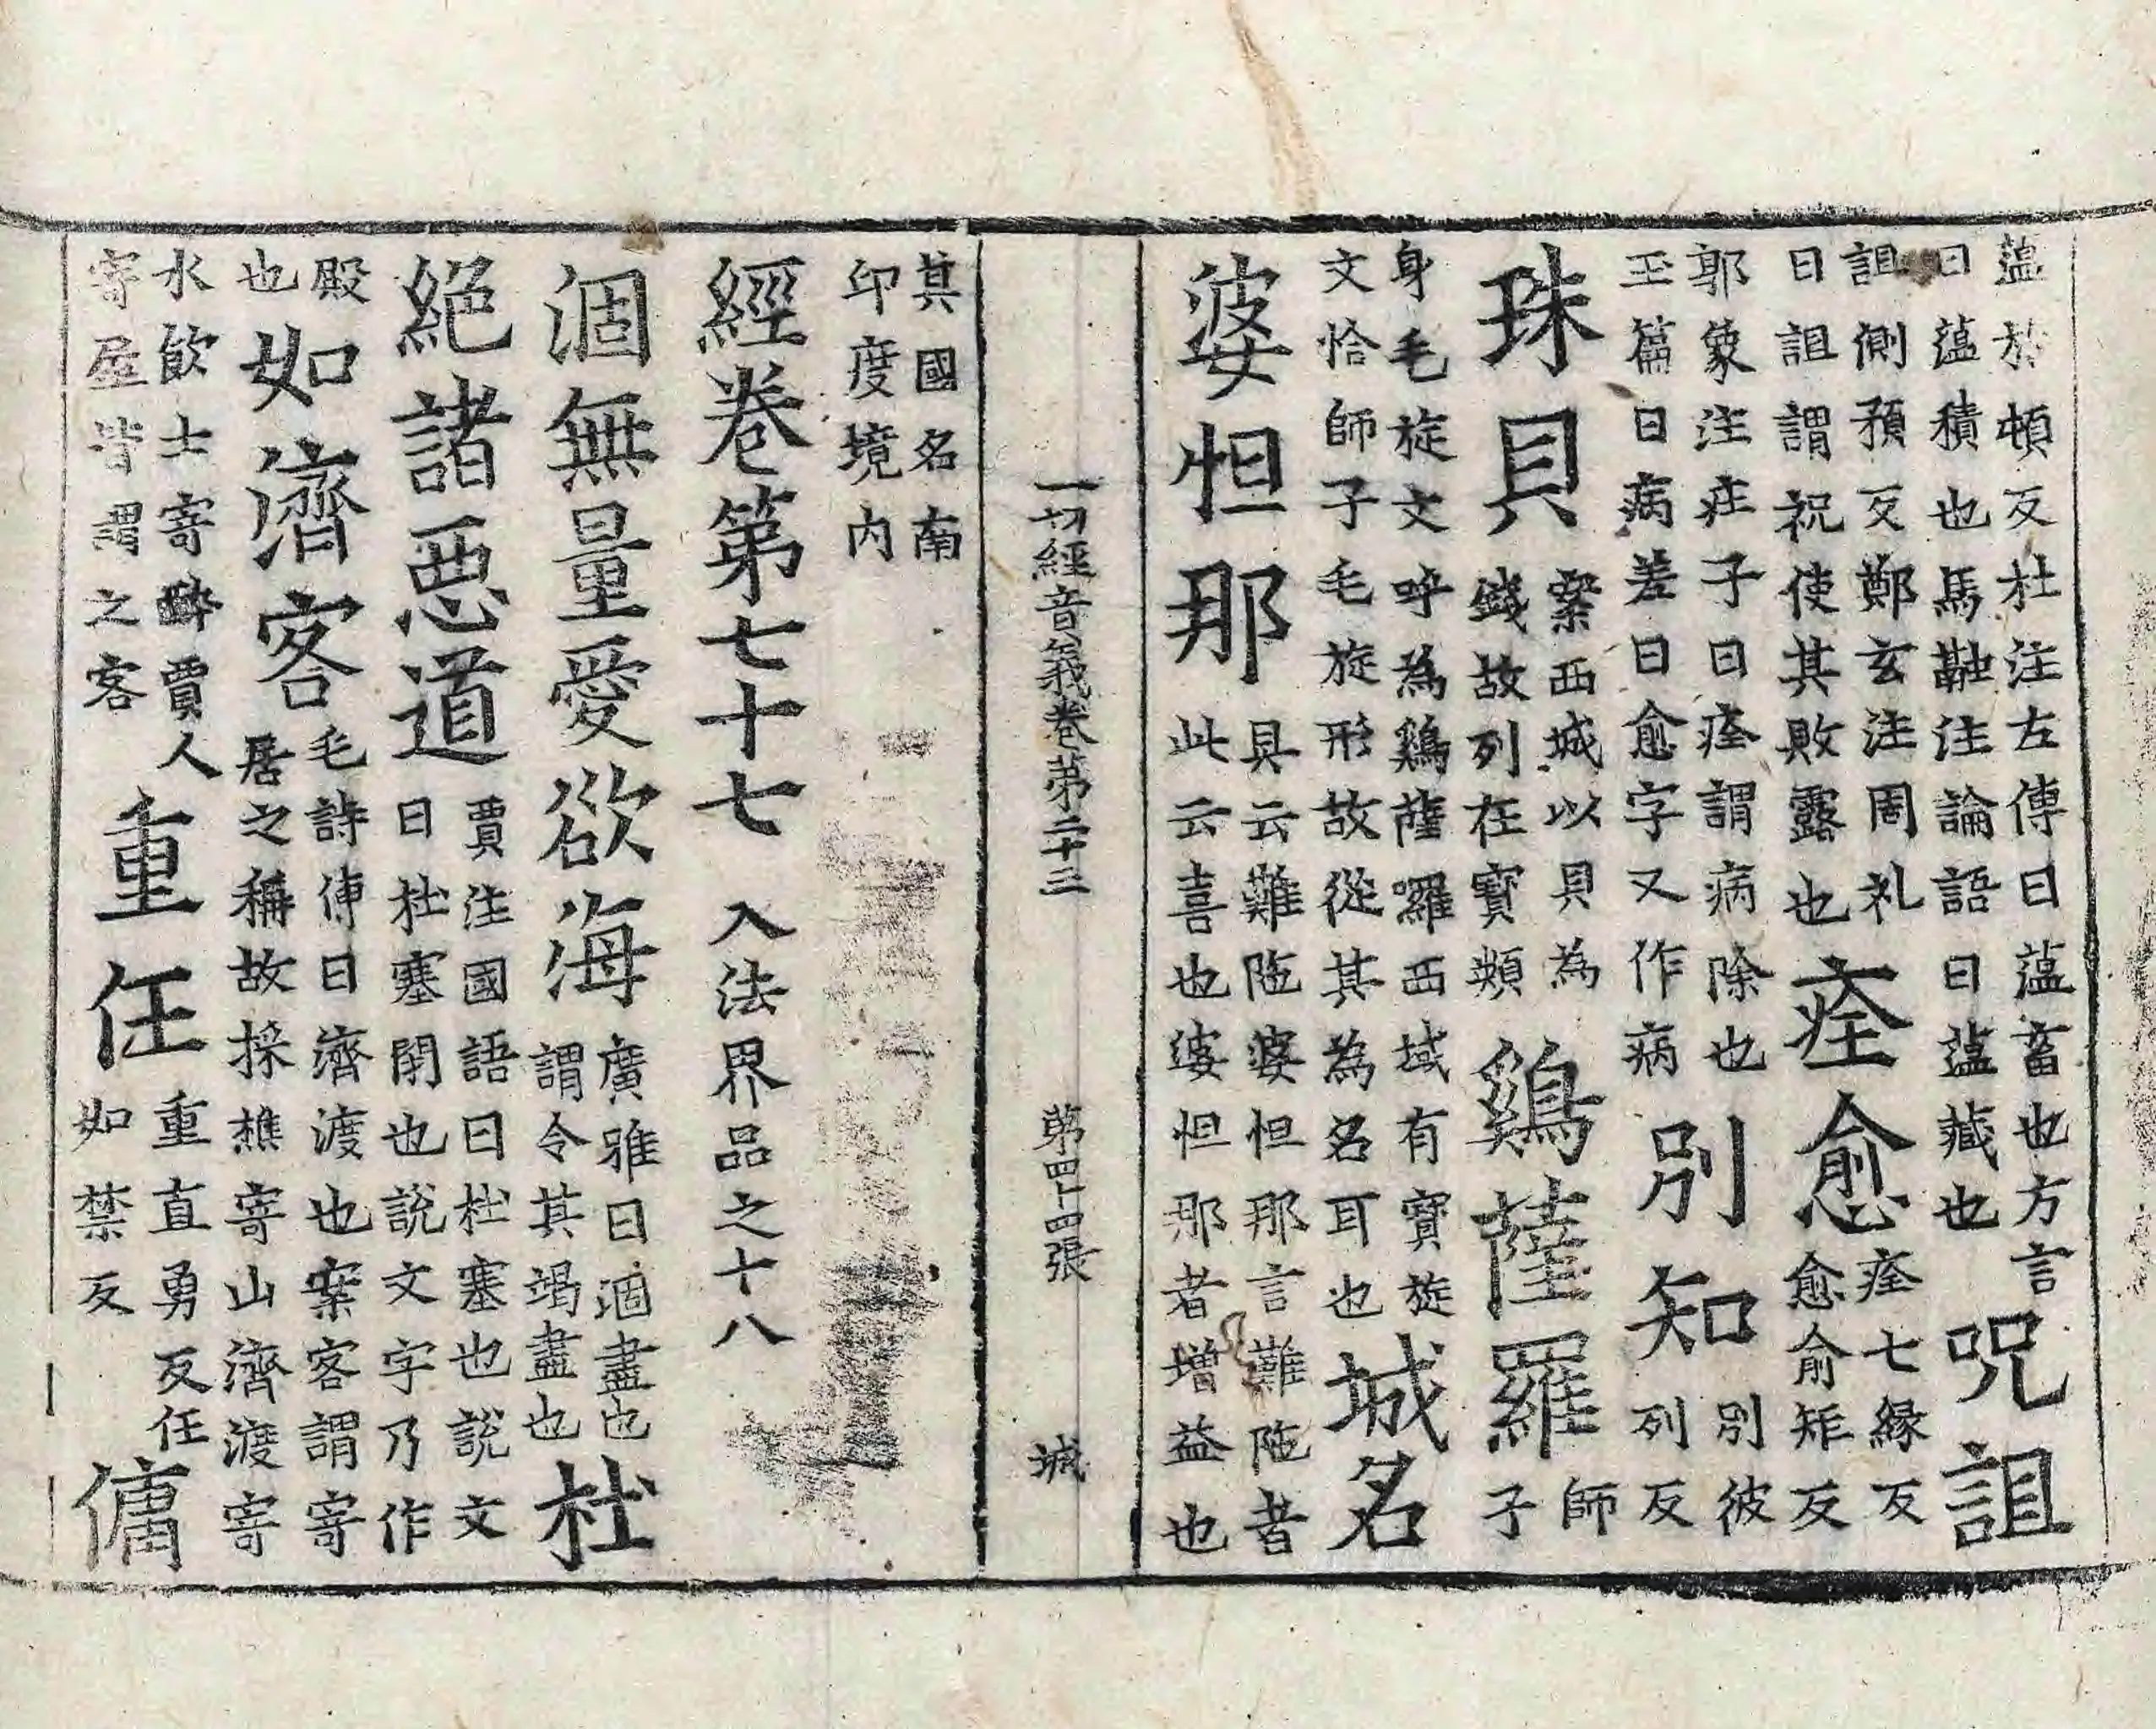 蕰於頓反杜注左傳曰蕰畜也方言
曰蕰積也馬融注論語曰蕰藏也
呪詛
詛側預反鄭玄注周礼
曰詛謂祝使其敗露也
痊愈
痊七緣反
愈俞矩反
郭象注庄子曰痊謂病除也
玉篇曰病差曰愈字又作病
別知
別彼
列反
珠貝
案西城以貝為
錢故列在寶類
鷄薩羅
師
子
身毛旋文呼為鷄薩囉西域有寶旋
文恰師子毛旋形故從其為名耳也
城名
婆怛那
具云難陁婆怛那言難陁者
此云喜也婆怛那者增益也
一切經音義卷第二十三
第四十四張
城
其國名南
印度境内
經卷第七十七
入法界品之十八
涸無量愛欲海
廣雅曰涸盡也
謂令其竭盡也
杜
絕諸惡道
賈注國語曰杜塞也說文
曰杜塞閇也說文字乃作
殿
也
如濟客
毛詩傳曰濟渡也案客謂寄
居之稱故採樵寄山濟渡寄
水飲士寄醉賈人
寄屋皆謂之客
重任
重直勇反任
如禁反
傭